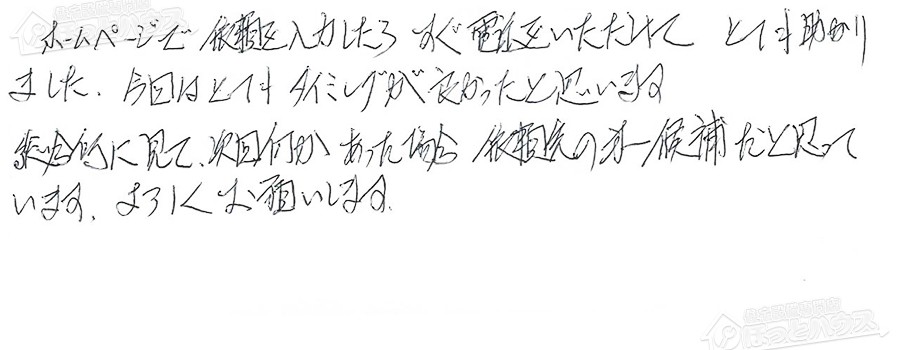 ホームページで依頼を入力したらすぐ電話をいただけて とても助かり
ました。今回はとてもタイミングが良かったと思います
総合的に見て、次回何かあった場合 依頼先の第一候補だと思って
います。よろしくお願いします。
ほっとハウス